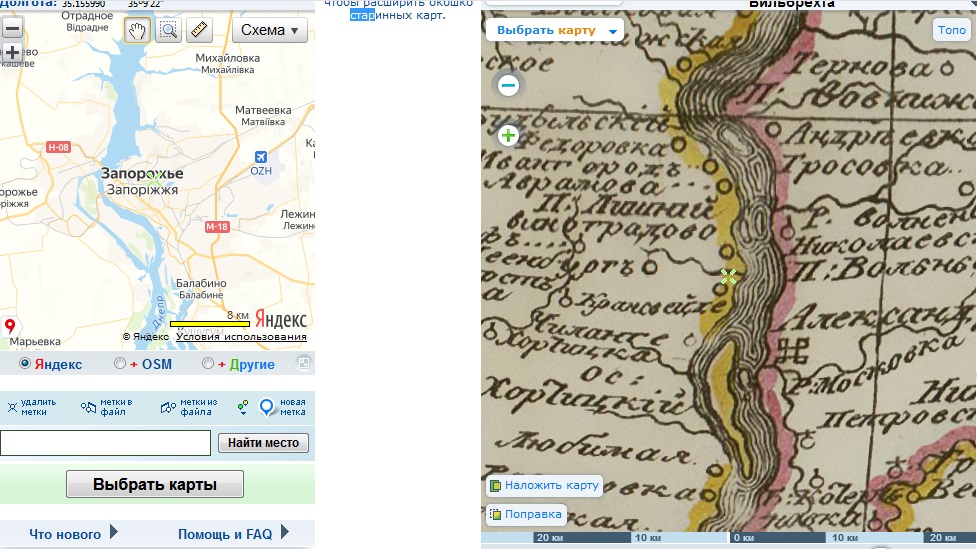 Долгота:
35.155990
35°9'22"
чтобы расширить окошко
старинных карт.
Вильбрехта
Отрадное
Відрадне
Схема
Михайловка
Михайлівка
Матвеевка
Матвіївка
H-08
OZH
Запорожье
Запоріжжя
M-18
Балабино
Балабине
Днепр
8 км
Яндекс
© Яндекс Условия использования
Марьевка
Яндекс
+ OSM
+ Другие
удалить метки
метки в файл
метки из файла
новая метка
Найти место
Выбрать карты
Что нового
Помощь и FAQ
Выбрать карту
Топо
ское
Тернова
Ѳедоровка
Андреевка
Тросовка
Авралова
П: Лишай
виноградово
Николаевс
П: Вольн
Александ
Хортицка
ос:
Хортицкій
Р: Московка
Петровс
Любимая
Наложить карту
Поправка
20 км
10 км
0 км
10 км
20 км